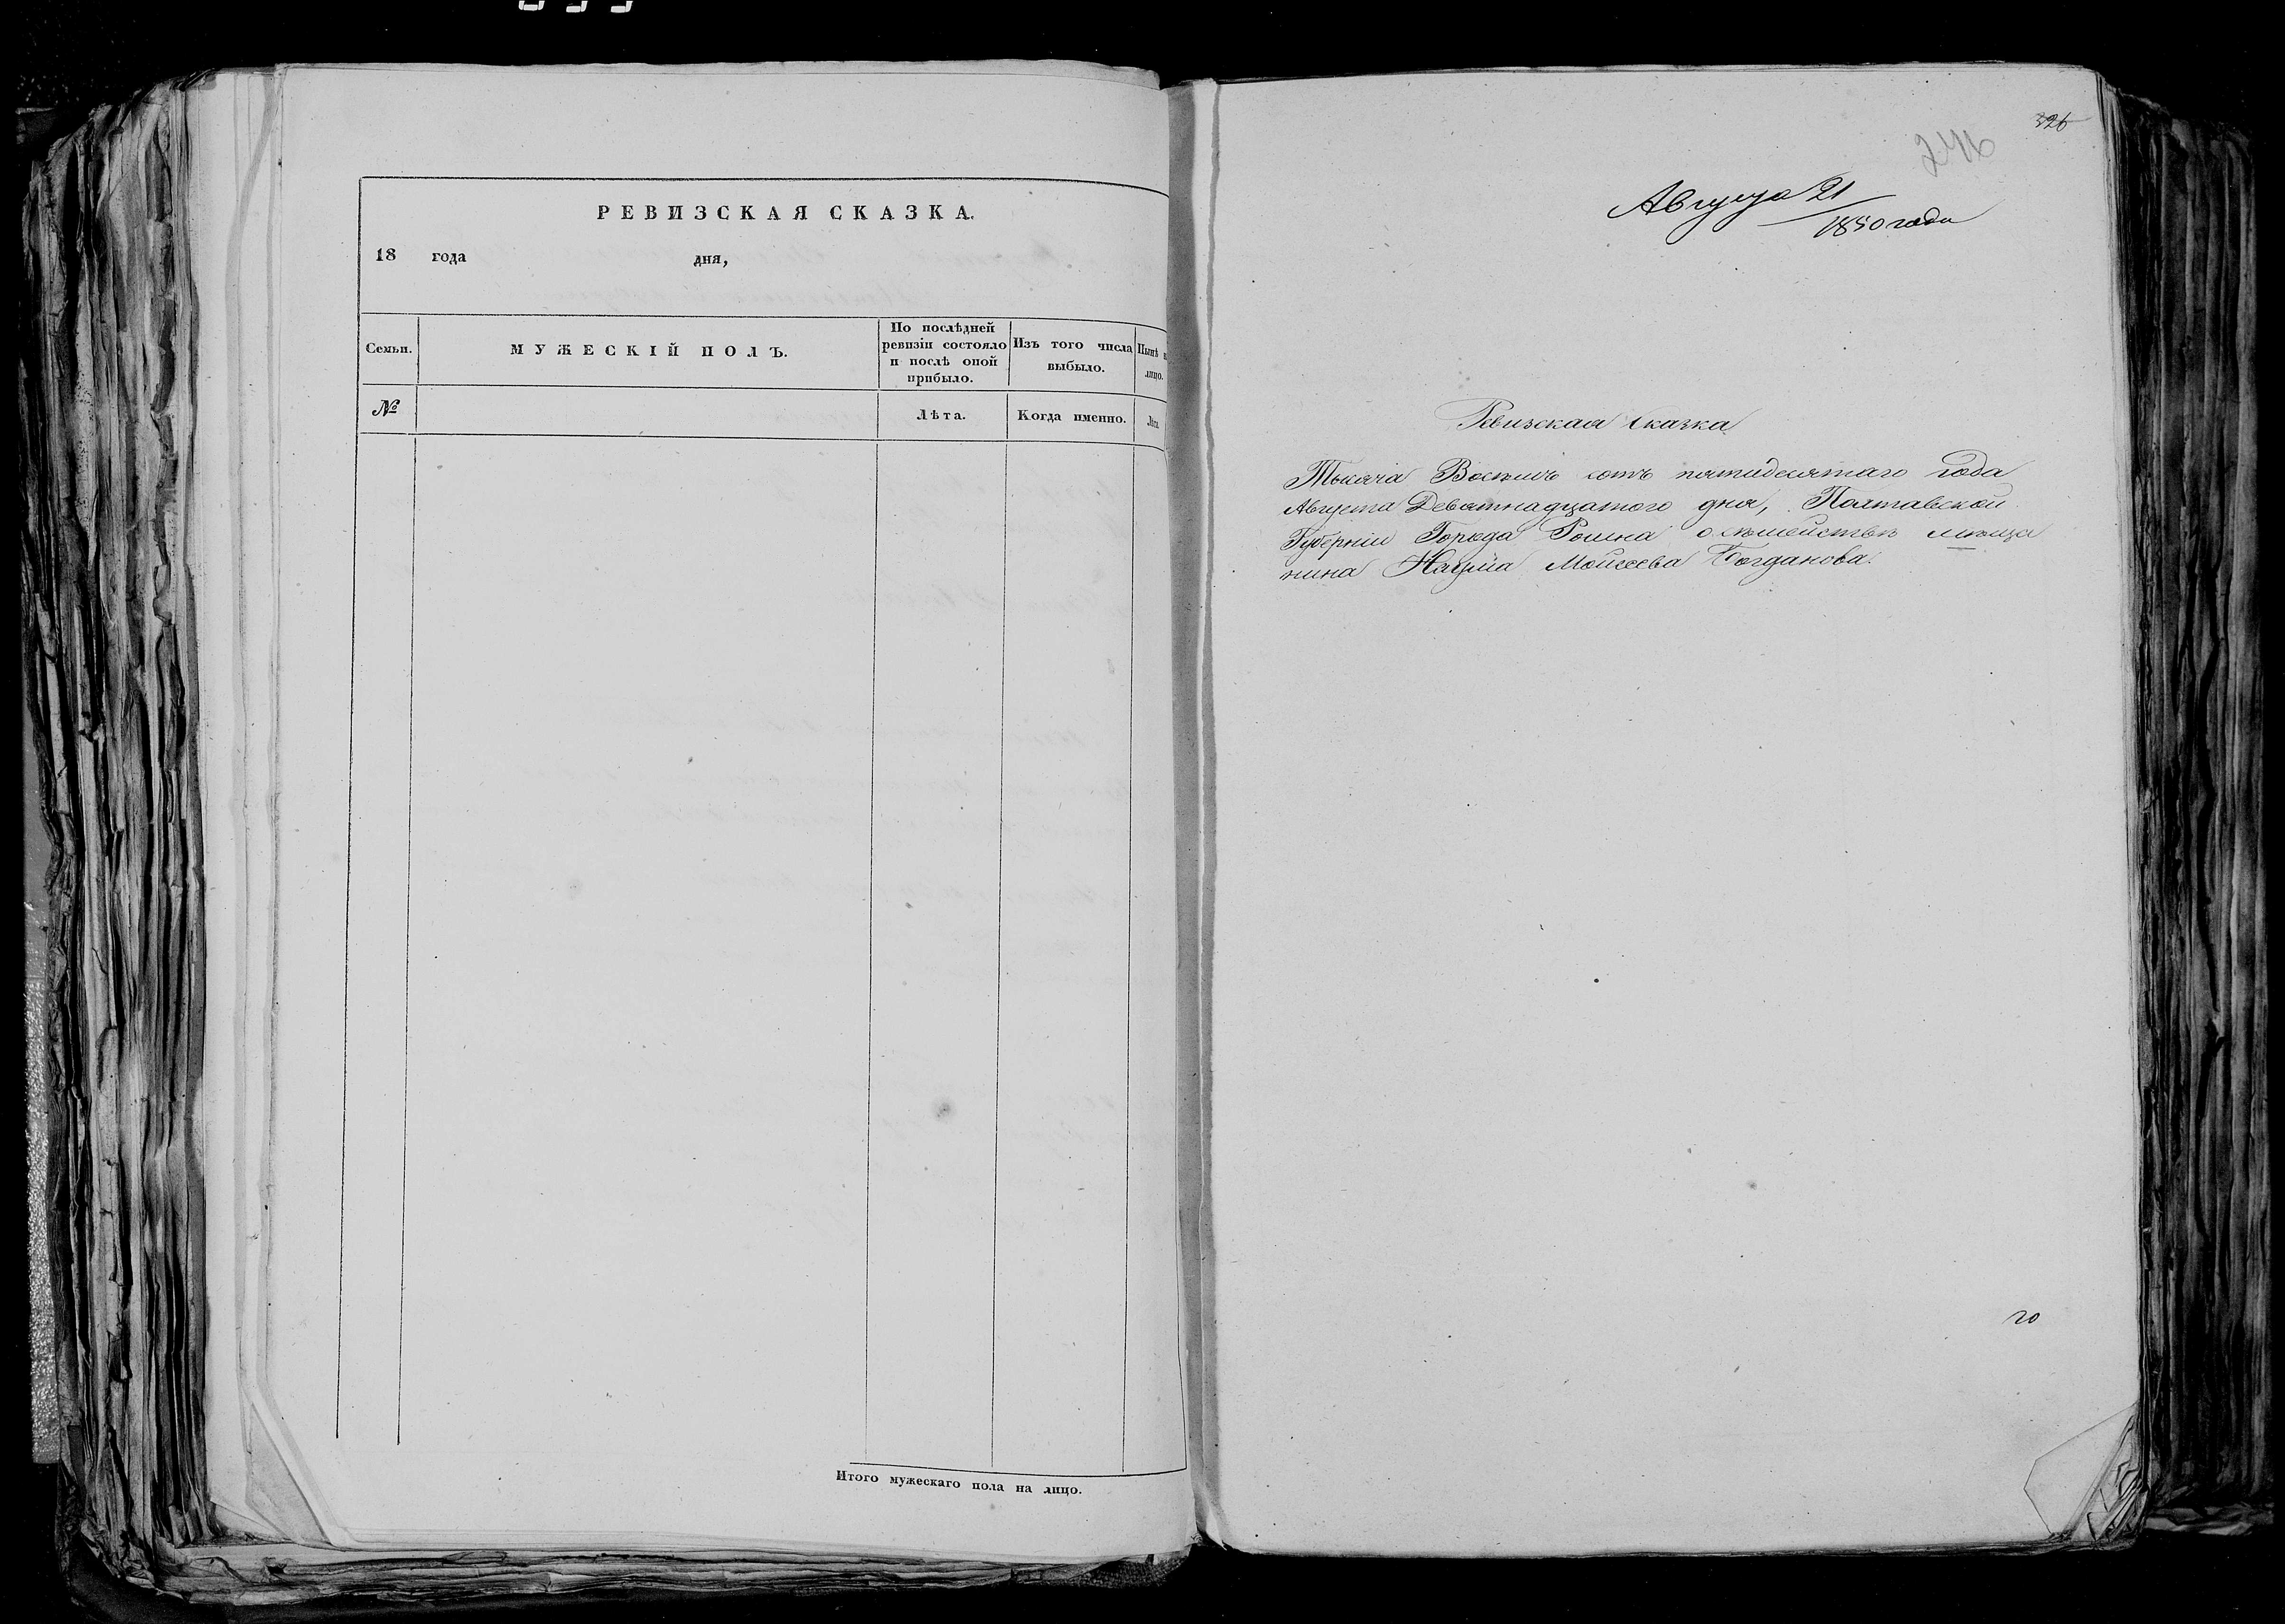 РЕВИЗСКАЯ СКАЗКА.
18 года дня,
Семьи.
МУЖЕСКІЙ ПОЛЪ.
По послѣдней
ревизіи состояло
и послѣ оной
прибыло.
Изъ того числа
выбыло.
Нынѣ на
лицо.
№
Лѣта.
Когда именно.
Лѣта.
Итого мужескаго пола на лицо.
326
246
Августа 21
1850 года
Ревизская Сказка
Тысяча Восемь сотъ пятидесятаго года
Августа Девятнадцатого дня, Полтавской
Губерніи Города Ромна о сѣмействѣ мѣща
нина Наума Моисеева Богданова.
20